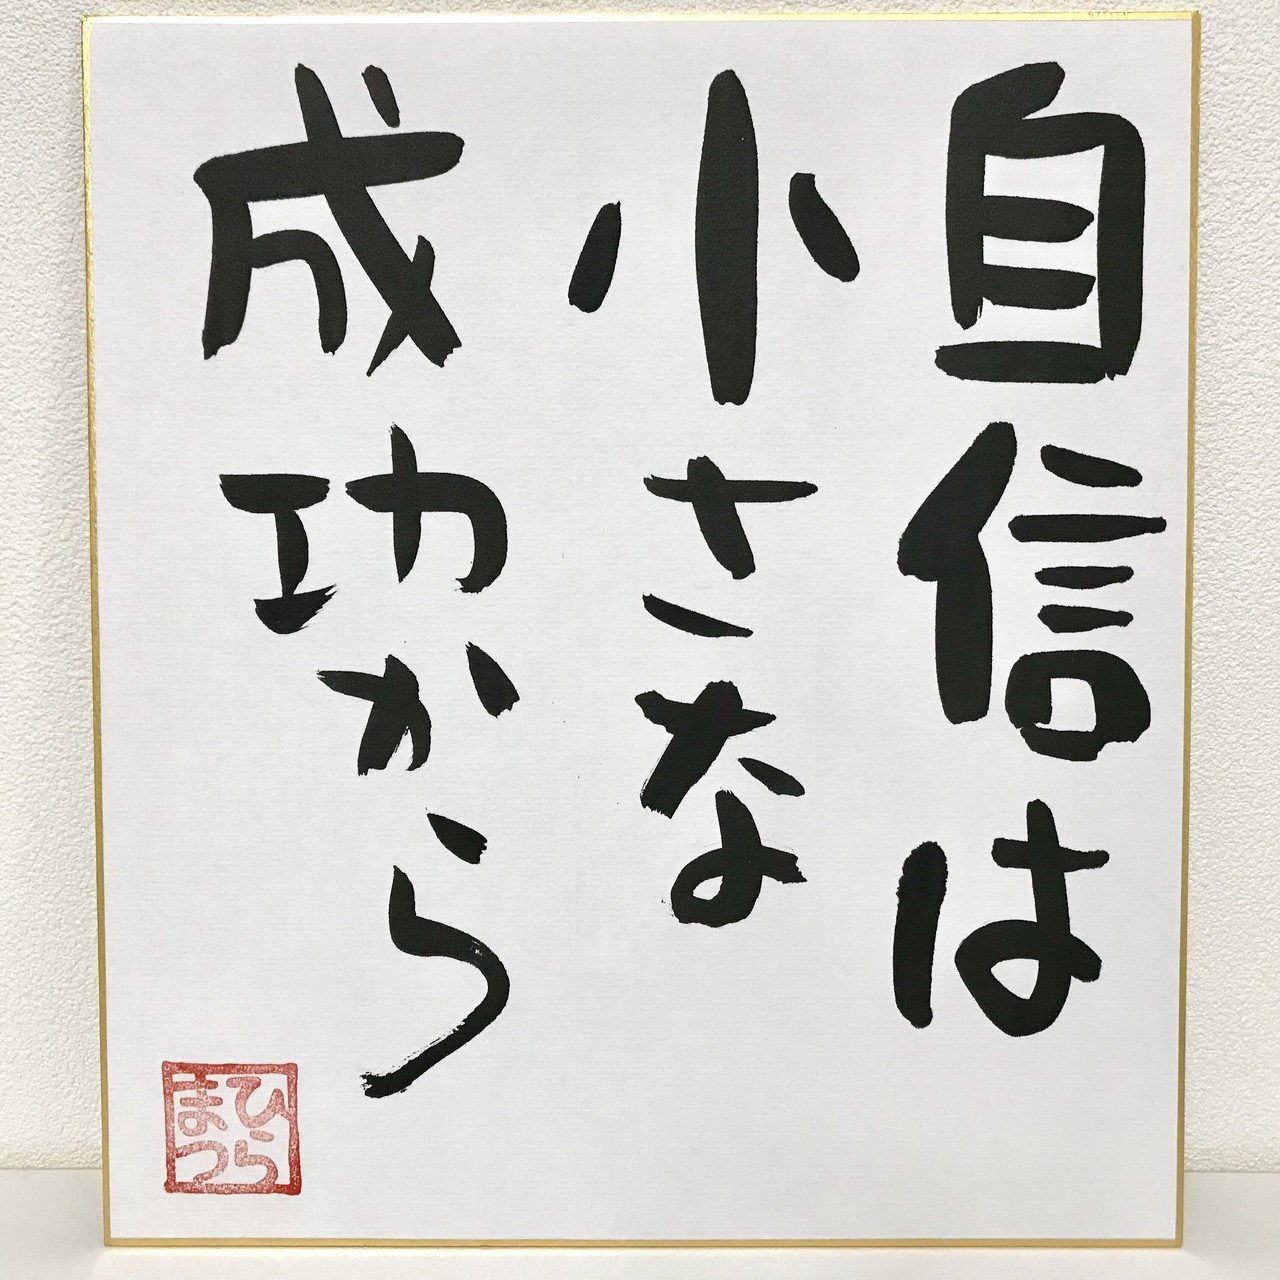 自信は
小さな
成功から
ひら
まつ